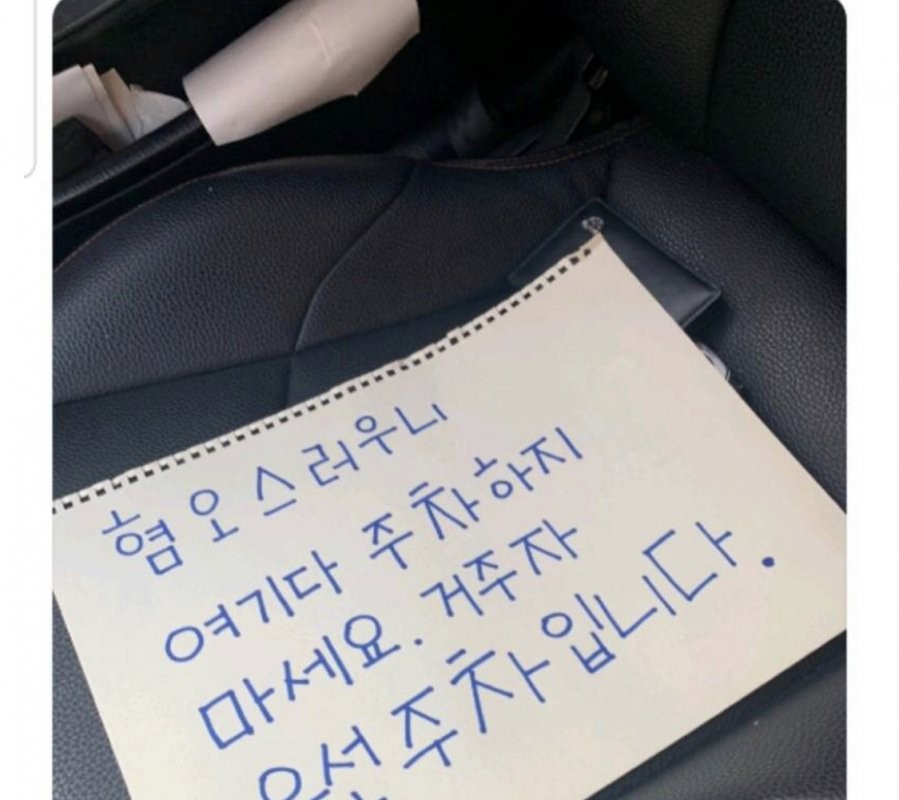 혐오스러우니
여기다 주차하지
마세요. 거주자
우선주차입니다.